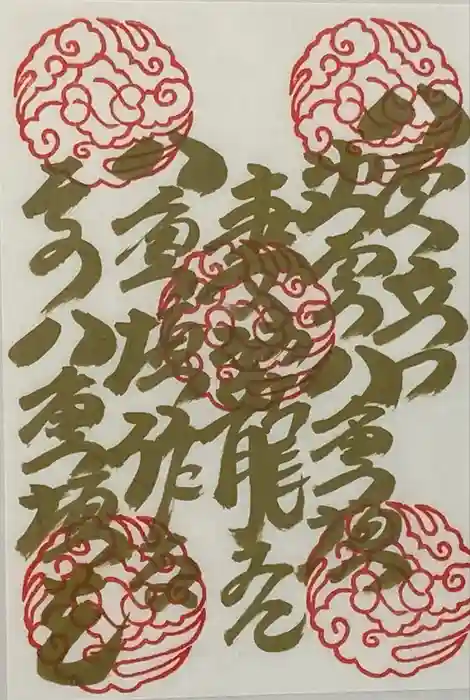 八雲立
出雲八重垣
妻
八重垣作る
その八重垣を